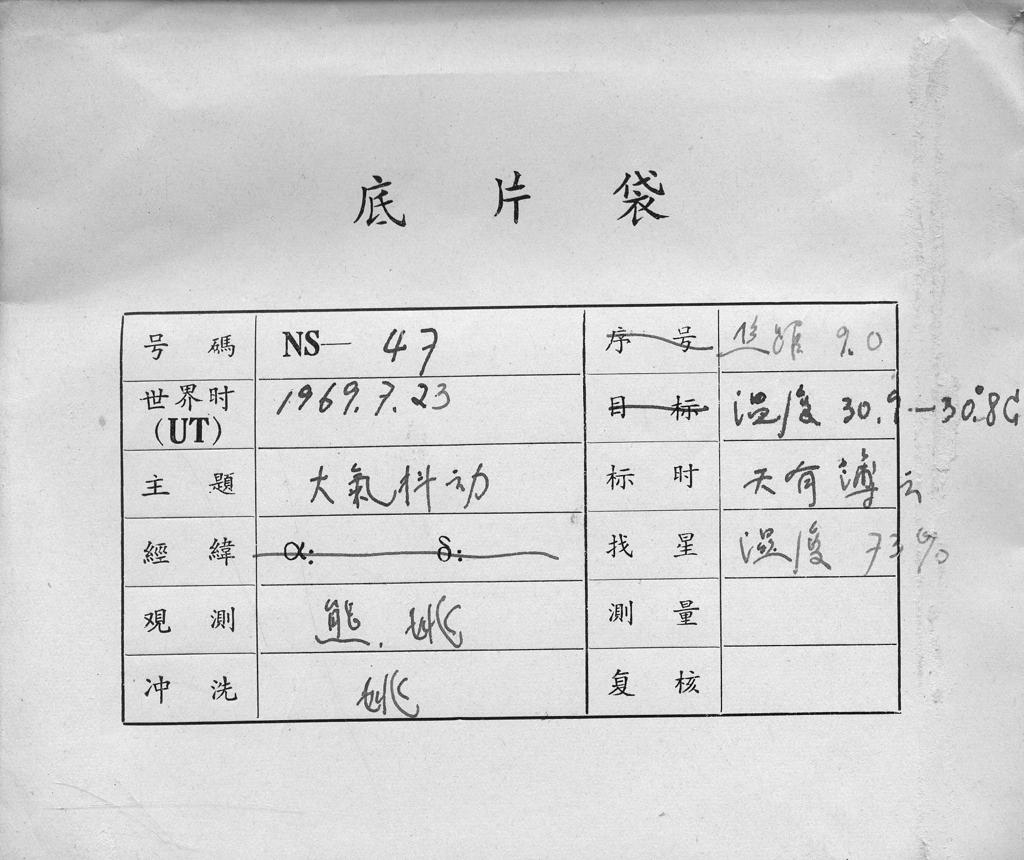 底片袋
号碼 NS— 47 序号 焦距 9.0
世界时 1969.7.23 目标 温度 30.9—30.8C
(UT)
主題 大氣抖动 标时 天有薄云
經緯 α: δ: 找星 湿度 73%
观測 熊. 姚 測量
冲洗 姚 复核